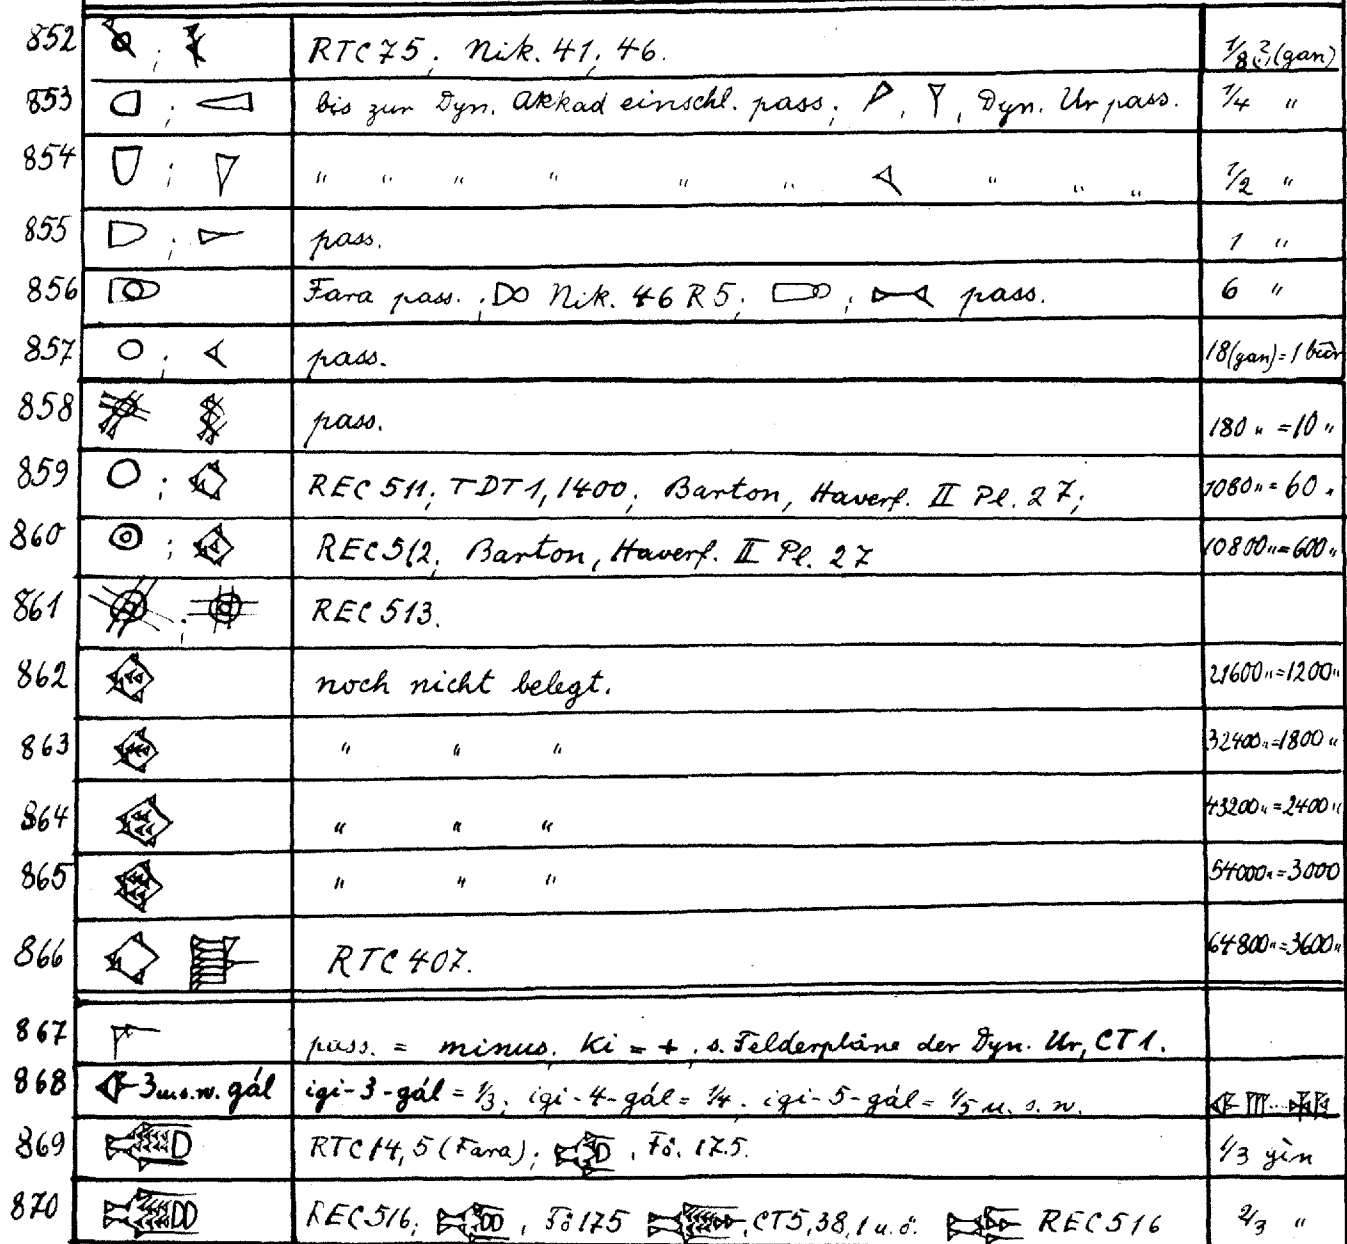 852 ; RTC 75; Nik. 41; 46. 1/8 (?) (gan)
853 ; bis zur Dyn. Akkad einschl. pass; , , Dyn. Ur pass. 1/4 "
854 ; " " " " " " " " " 1/2 "
855 ; pass. 1 "
856 Fara pass.; Nik. 46 R 5; ; pass. 6 "
857 ; pass. 18 (gan) = 1 bùr
858 pass. 180 " = 10 "
859 ; REC 511; TDT 1, 1400; Barton, Haverf. II Pl. 27; 1080 " = 60 "
860 ; REC 512; Barton, Haverf. II Pl. 27 10800 " = 600 "
861 ; REC 513.
862 noch nicht belegt. 21600 " = 1200 "
863 " " " 32400 " = 1800 "
864 " " " 43200 " = 2400 "
865 " " " 54000 " = 3000
866 RTC 407. 64800 " = 3600 "
867 pass. = minus. Ki = +, s. Felderpläne der Dyn. Ur, CT 1.
868 3 u.s.w. gál igi-3-gál = 1/3; igi-4-gál = 1/4; igi-5-gál = 1/5 u. s. w.
869 RTC 14, 5 (Fara); , Fö. 175. 1/3 gín
870 REC 516; , Fö 175 , CT 5, 38, 1 u. ö. REC 516 2/3 "